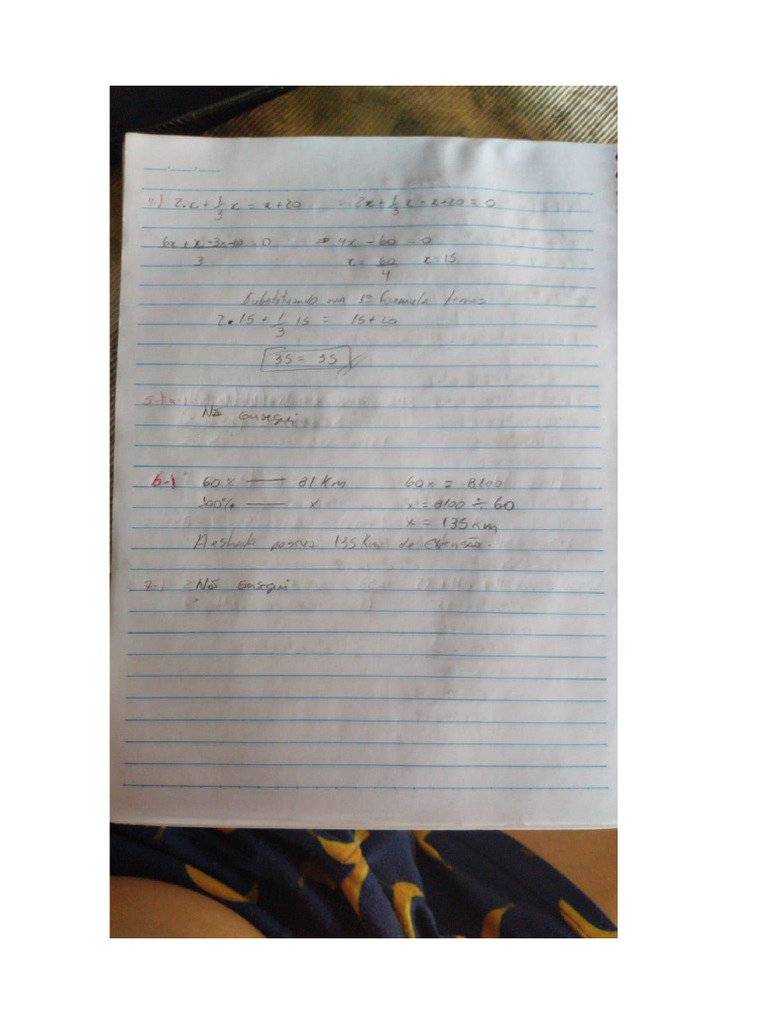 4-) 2.x + 1/3 x = x+20 = 2x + 1/3 x - x - 20 = 0
6x + x - 3x - 60 = 0 / 3 => 4x - 60 = 0
x = 60/4 x = 15
Substituindo na 1ª Formula temos
2 • 15 + 1/3 15 = 15+20
35 = 35
5-) a-)
Não consegui
6-) 60% — 81 Km 60x = 8100
100% — x x = 8100 ÷ 60
x = 135 Km
A estrada possui 135 Km de extensão.
7-) Não consegui